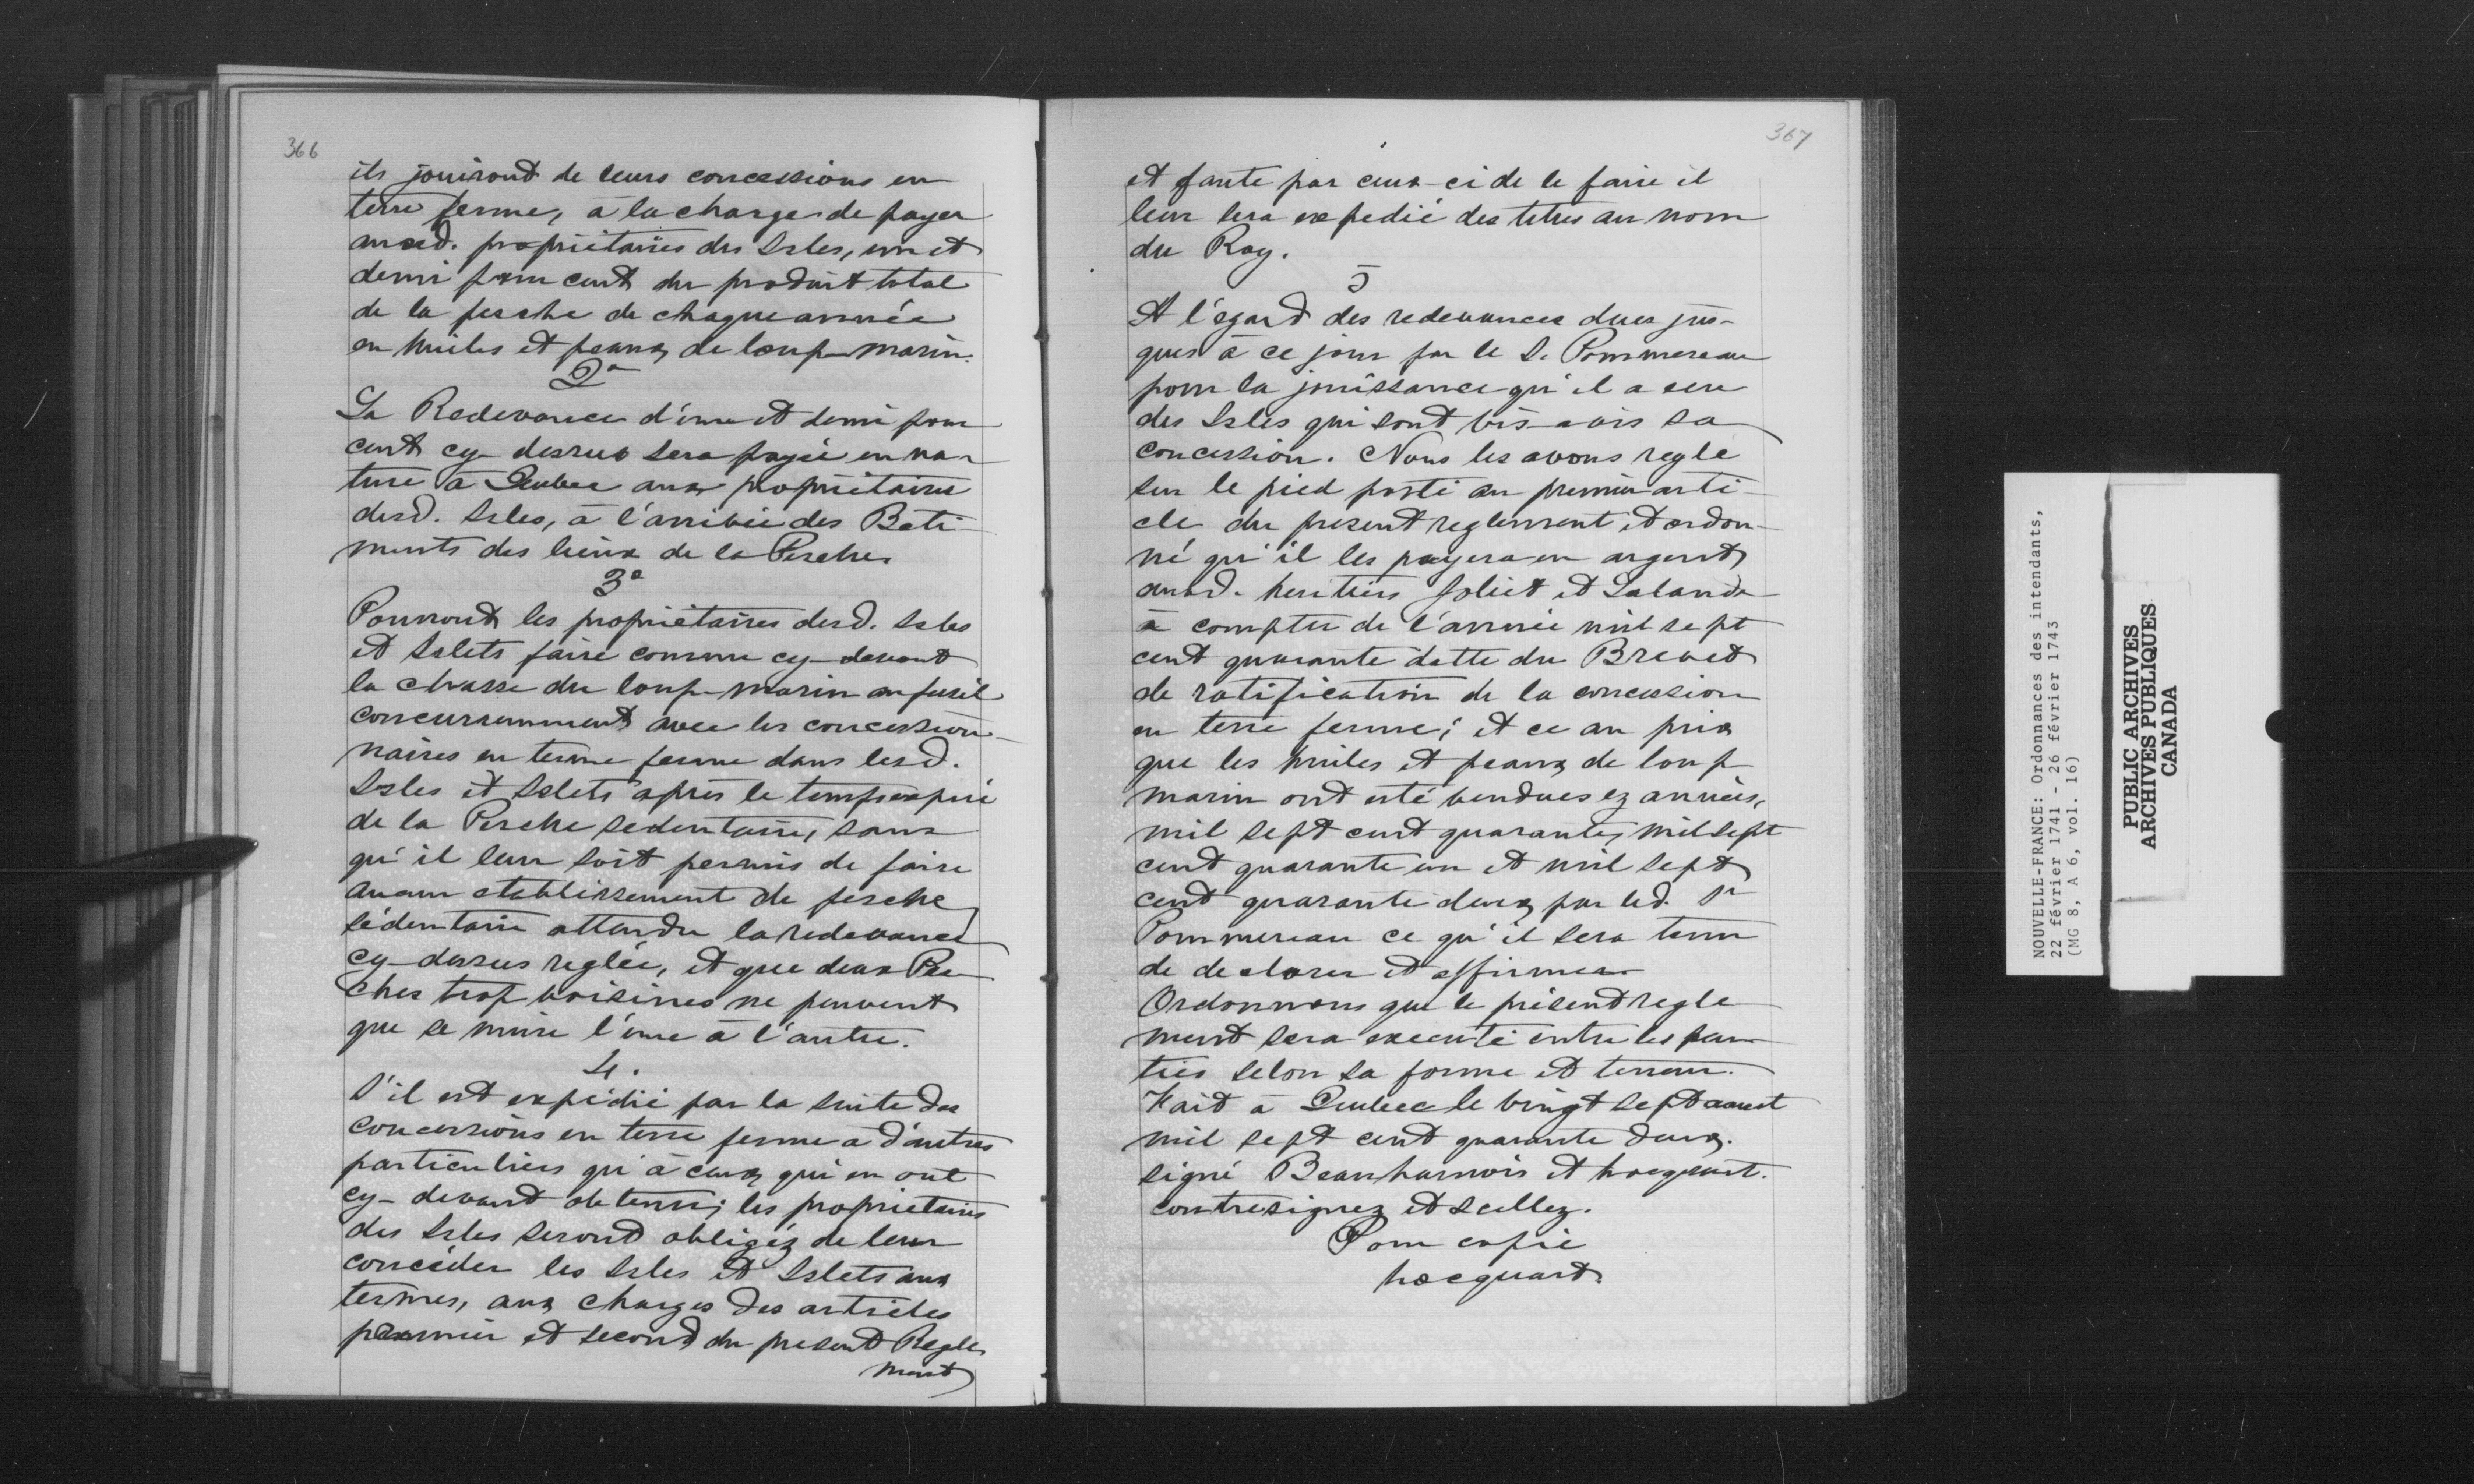 366
ils jouiront de leurs concessions en
terre ferme, à la charge de payer
auxd. propriétaires des Isles, un et
demi pour cent du produit total
de la pesche de chaque année
en huiles et peaux de loup-marin.
2°
La Redevance d'un et demi pour
cent cy-dessus sera payée en na-
ture à Quebec aux propriétaires
desd. Isles, à l'arrivée des Bati-
ments des lieux de la Pesche.
3°
Pourront les propriétaires desd. Isles
et Islets faire comme cy-devant
la chasse du loup-marin au fusil
concurremment avec les concession-
naires en terre ferme dans lesd.
Isles et Islets après le temps expiré
de la Pesche sedentaire, sans
qu'il leur soit permis de faire
aucun etablissement de pesche
sédentaire attendu la redevance
cy-dessus reglée, et que deux Pes-
ches trop voisines ne peuvent
que se nuire l'une à l'autre.
4.
S'il est expédié par la suite des
concessions en terre ferme a d'autres
particuliers qu'à ceux qui en ont
cy-devant obtenu; les propriétaires
des Isles seront obligéz de leur
concéder les Isles et Islets aux
termes, aux charges des articles
premier et second du present Regle-
ment
367
et faute par ceux-ci de le faire il
leur sera expedié des titres au nom
du Roy.
5
A l'égard des redevances dues jus-
ques à ce jour par le S. Pommereau
pour la jouissance qu'il a eue
des Isles qui sont vis-a-vis sa
concession. Nous les avons regle
sur le pied porté au premier arti-
cle du present reglement, et ordon-
né qu'il les payera en argent
auxd. heritiers Joliet et Lalande
à compter de l'année mil sept
cent quarante datte du Brevet
de ratification de la concession
en terre ferme; et ce au prix
que les huiles et peaux de loup
marin ont esté vendues ez années,
mil sept cent quarante, mil sept
cent quarante un et mil sept
cent quarante deux par led. Sr
Pommereau ce qu'il sera tenu
de declarer et affirmer
Ordonnons que le présent regle-
ment sera executé entre les par-
ties selon sa forme et teneur.
Fait à Quebec le vingt sept aoust
mil sept cent quarante deux.
signé Beauharnois et hocquart.
contresignez et scellez.
Pour copie
hocquart.
NOUVELLE-FRANCE: Ordonnances des intendants,
22 février 1741 - 26 février 1743
(MG 8, A 6, vol. 16)
PUBLIC ARCHIVES
ARCHIVES PUBLIQUES
CANADA